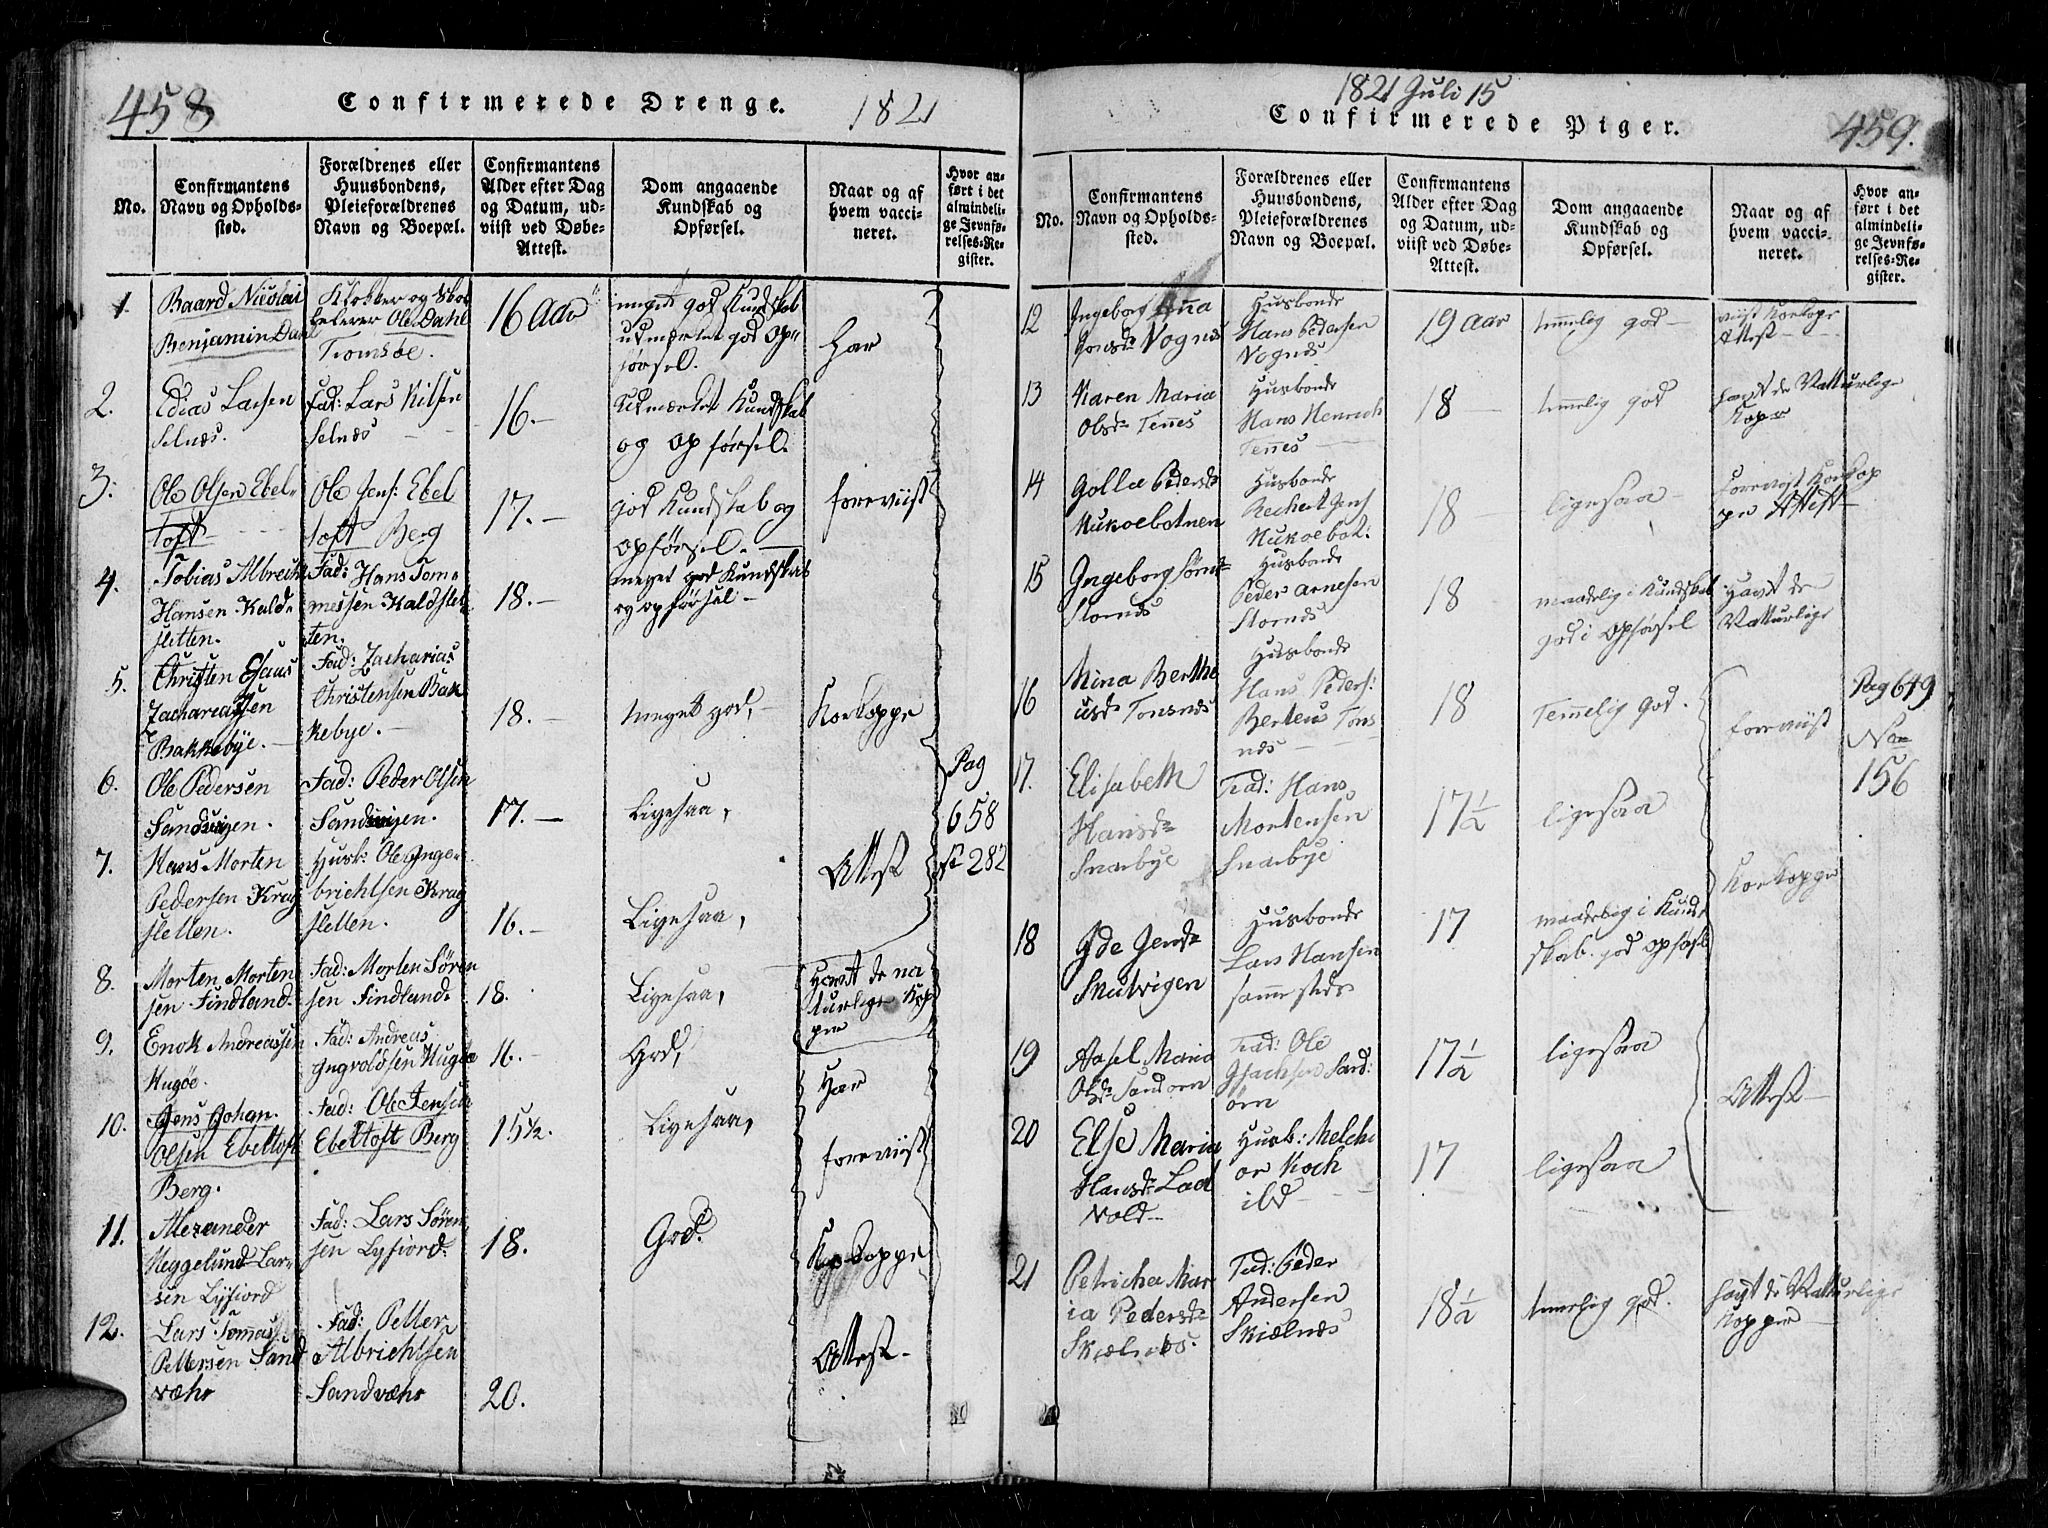 458
Confirmerede Drenge.
1821
No.
Confirmantens
Navn og Opholds-
sted.
Forældrenes eller
Huusbondens,
Pleieforældrenes
Navn og Boepæl.
Confirmantens
Alder efter Dag
og Datum, ud-
viist ved Døbe-
Attest.
Dom angaaende
Kundskab og
Opførsel.
Naar og af
hvem vacci-
neret.
Hvor an-
ført i det
almindeli-
ge Jevnfø-
relses-Re-
gister.
1.
Baard Nicolai
Benjamin Dahl
Klokker og Skol
Ole Dahl
Tromsøe.
16 Aar
meget god Kundskab
udmærket god Op-
førsel.
har
2.
Edias Larsen
Selnæs.
Fad: Lars Nilsen
Selnæs
16.-
Udmærket Kundskab
og opførsel.
3.
Ole Olsen Ebel-
toft
Ole Jens: Ebel
toft Berg
17.-
god Kundskab og
opførsel.
foreviist
4.
Tobias Albrecht
Hansen Kald-
sletten.
Fad: Hans Tom-
messen Kaldslet-
ten.
18.-
meget god Kundskab
og opførsel-
5.
Christen Esaus
Zachariassen
Bakkebye.
Fad: Zacharias
Christensen Bak
kebye.-
18.-
meget god,
Korkoppe
6.
Ole Pedersen
Sandvigen.
Fad: Peder Olsen
Sandvigen.
17.-
Ligesaa,
Pag
658
No 282
7.
Hans Morten
Pedersen Krag
sletten.
Husb: Ole Inge-
brichtsen Krag
sletten.
16.-
Ligesaa,
Attest
8.
Morten Morten
sen Findland.
Fad: Morten Søren
sen Findland.
18.
Ligesaa,
Havt de na
turlige Kop
per
9.
Enok Andreassen
Mugøe.
Fad: Andreas
Ingvoldsen Mugøe
16.-
God,
Har
10.
Jens Johan
Olsen Ebeltoft
Berg.
Fad: Ole Jensen
Ebeltoft Berg
15 1/2.
Ligesaa,
foreviist
11.
Alexander
Heggelund Lar-
sen Lyfiord
Fad: Lars Søren
sen Lyfiord.
18.
God.
Kopkoppe
12.
Lars Tomas
Pettersen Sand
væhr
Fad: Petter
Albrichtsen
Sandvæhr
20.
Attest-
1821 Juli 15
Confirmerede Piger.
459.
No.
Confirmantens
Navn og Opholds-
sted.
Forældrenes eller
Huusbondens,
Pleieforældrenes
Navn og Boepæl.
Confirmantens
Alder efter Dag
og Datum, ud-
viist ved Døbe-
Attest.
Dom angaaende
Kundskab og
Opførsel.
Naar og af
hvem vacci-
neret.
Hvor an-
ført i det
almindeli-
ge Jevnfø-
relses-Re-
gister.
12
Ingeborg Ana
Jonsdr Vognæs
Husbonde
Hans Pedersen
Vognæs
19 Aar
temelig god-
viist Korkope
Attest-
13
Karen Maria
Olsdr Tennes
Husbonde
Hans Henrich
Tennes
18
temelig god
havt de Natturlige
Koper
14
Golla Pedersdr
Nukoebotnen
Husbonde
Rechert Jens
Nukoebot:
18
ligesaa-
Foreviist Korkop
pe Attest
15
Ingeborg Sørns
Stornæs
Husbonde
Peder Arnesen
Stornæs
18
maadelig i Kundskab
god i opførsel
Havt de
Natturlige
16
Nina Berthe
usdr Tonsnæs
Husbonde
Hans Peders:
Berteus Tons
næs
18
Temmelig god.
foreviist
Pag 649
No
156
17.
Elisabeth
Hansdr
Snarbye
Fad: Hans
Mortensen
Snarbye
17 1/2
ligesaa
Korkoppe
18
Ide Jensdr
Skulvigen
Husbonde
Lars Hansen
samme steds
17
maadelig i Kund
skab. god opførsel
19
Aasel Maria
Olsdr Sandørn
Fad: Ole
Isachsen Sand:
ørn
17 1/2
ligesaa
Attest-
20
Else Maria
Hansdr Lad
Vold-
Husb: Melchi
or Koch
ibd
17
ligesaa
21
Petricha Mar
ia Pedersdr
Skiælnæs.
Fad: Peder
Andersen
Skiælnæs
18 1/2
temelig god.
havt de Natturlige
Kopper